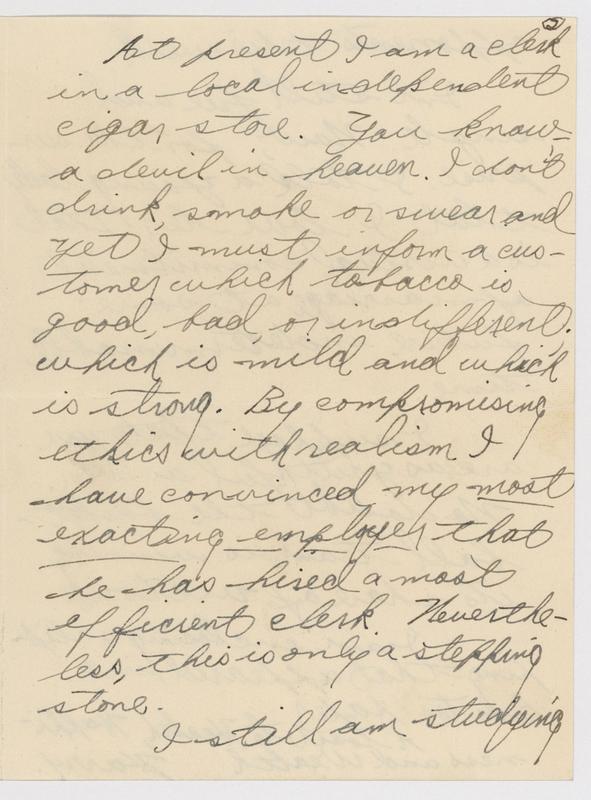 5
At present I am a clerk
in a local independent
cigar store. You know–
a devil in heaven. I don't
drink, smoke or swear and
yet I must inform a cus-
tomer which tobacco is
good, bad, or indifferent,
which is mild and which
is strong. By compromising
ethics with realism I
have convinced my most
exacting employer that
he has hired a most
efficient clerk Neverthe-
less, this is only a stepping
stone.
I still am studying